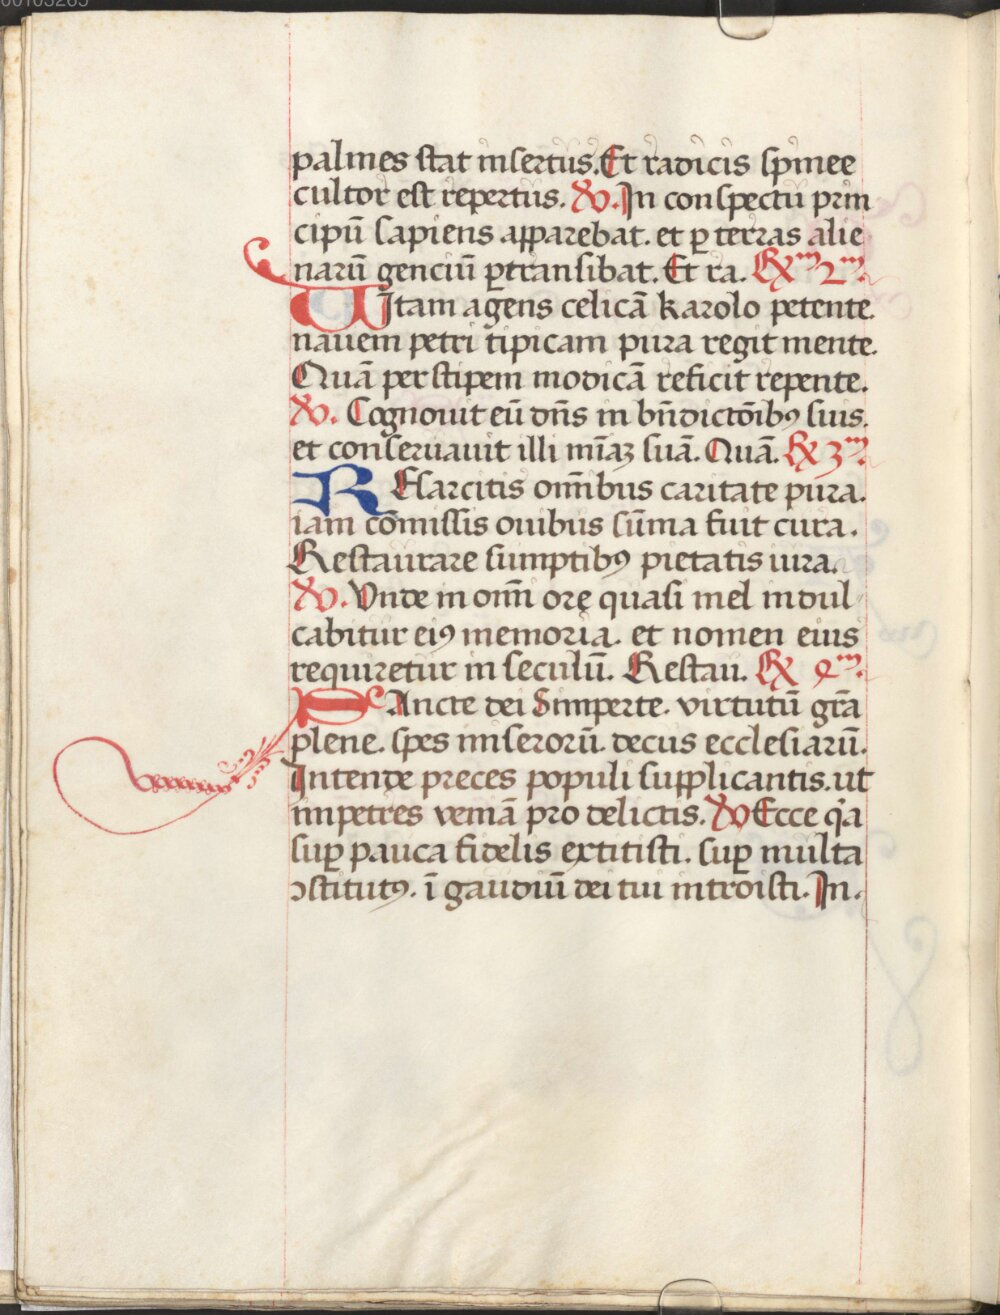 palmes stat insertus. Et radicis spinee
cultor est repertus. ℣. In conspectu prin
cipū sapiens apparebat. et ꝑ terras alie
narū genciū ꝑtransibat. Et ra. ℞m 2m.
UItam agens celicā karolo petente.
nauem petri tipicam pura regit mente.
Quā per stipem modicā reficit repente.
℣. Cognouit eū dn̄s in bn̄dictōibꝰ suis.
et conseruauit illi mīaꝫ suā. Quā. ℞ 3m.
REsarcitis om̄ibus caritate pura.
iam cōmissis ouibus sūma fuit cura.
Restaurare sumptibꝰ pietatis iura.
℣. Vnde in om̄i ore quasi mel indul
cabitur eiꝰ memoria. et nomen eius
requiretur in seculū. Restau. ℞ 4m.
SAncte dei Simperte. virtutū gr̄a
plene. spes miserorū. decus ecclesiarū.
Intende preces populi supplicantis. ut
impetres veniā pro delictis. ℣ Ecce q̇a
suꝑ pauca fidelis extitisti. suꝑ multa
ↄstitutꝰ. ī gaudiū dei tui introisti. In.